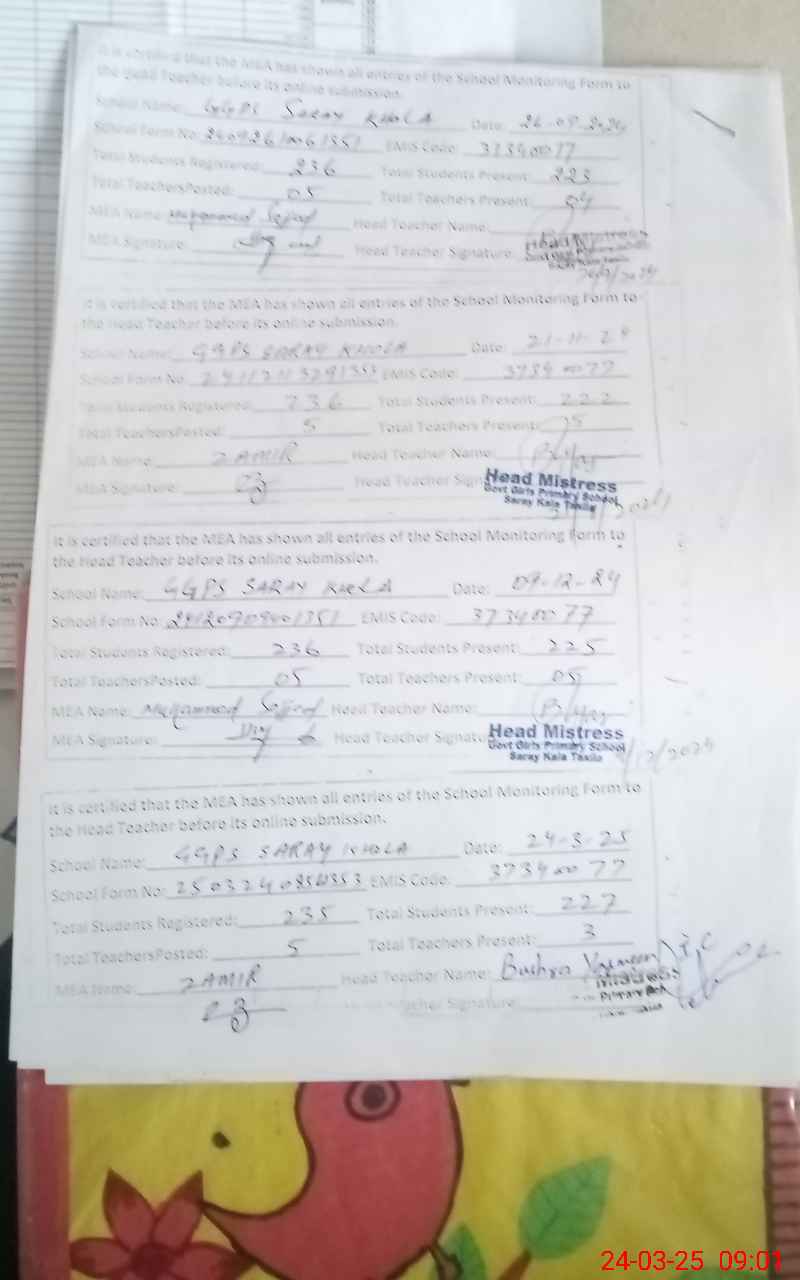 It is certified that the MEA has shown all entries of the School Monitoring Form to
the Head Teacher before its online submission.
School Name: GGPS SARAY KHOLA Date: 26-09-2024
School Form No: EMIS Code: 37340077
Total Students Registered: 236 Total Students Present: 223
Total TeachersPosted: 05 Total Teachers Present: 04
MEA Name: Muhammad Sajjad Head Teacher Name:
MEA Signature: Head Teacher Signature:
Head Mistress
It is certified that the MEA has shown all entries of the School Monitoring Form to
the Head Teacher before its online submission.
School Name: GGPS SARAY KHOLA Date: 21-11-24
School Form No: EMIS Code: 37340077
Total Students Registered: 236 Total Students Present: 222
Total TeachersPosted: 5 Total Teachers Present: 5
MEA Name: ZAMIR Head Teacher Name:
MEA Signature: Head Teacher Sign
Head Mistress
Govt Girls Primary School
Saray Kala Taxila
It is certified that the MEA has shown all entries of the School Monitoring Form to
the Head Teacher before its online submission.
School Name: GGPS SARAY KHOLA Date: 09-12-24
School Form No: EMIS Code: 37340077
Total Students Registered: 236 Total Students Present: 225
Total TeachersPosted: 05 Total Teachers Present: 05
MEA Name: Muhammad Sajjad Head Teacher Name:
MEA Signature: Head Teacher Signatu
Head Mistress
Govt Girls Primary School
Saray Kala Taxila
It is certified that the MEA has shown all entries of the School Monitoring Form to
the Head Teacher before its online submission.
School Name: GGPS SARAY KHOLA Date: 24-3-25
School Form No: EMIS Code: 37340077
Total Students Registered: 235 Total Students Present: 227
Total TeachersPosted: 5 Total Teachers Present: 3
MEA Name: ZAMIR Head Teacher Name: Bushra Yasmeen
Signature
24-03-25 09:01